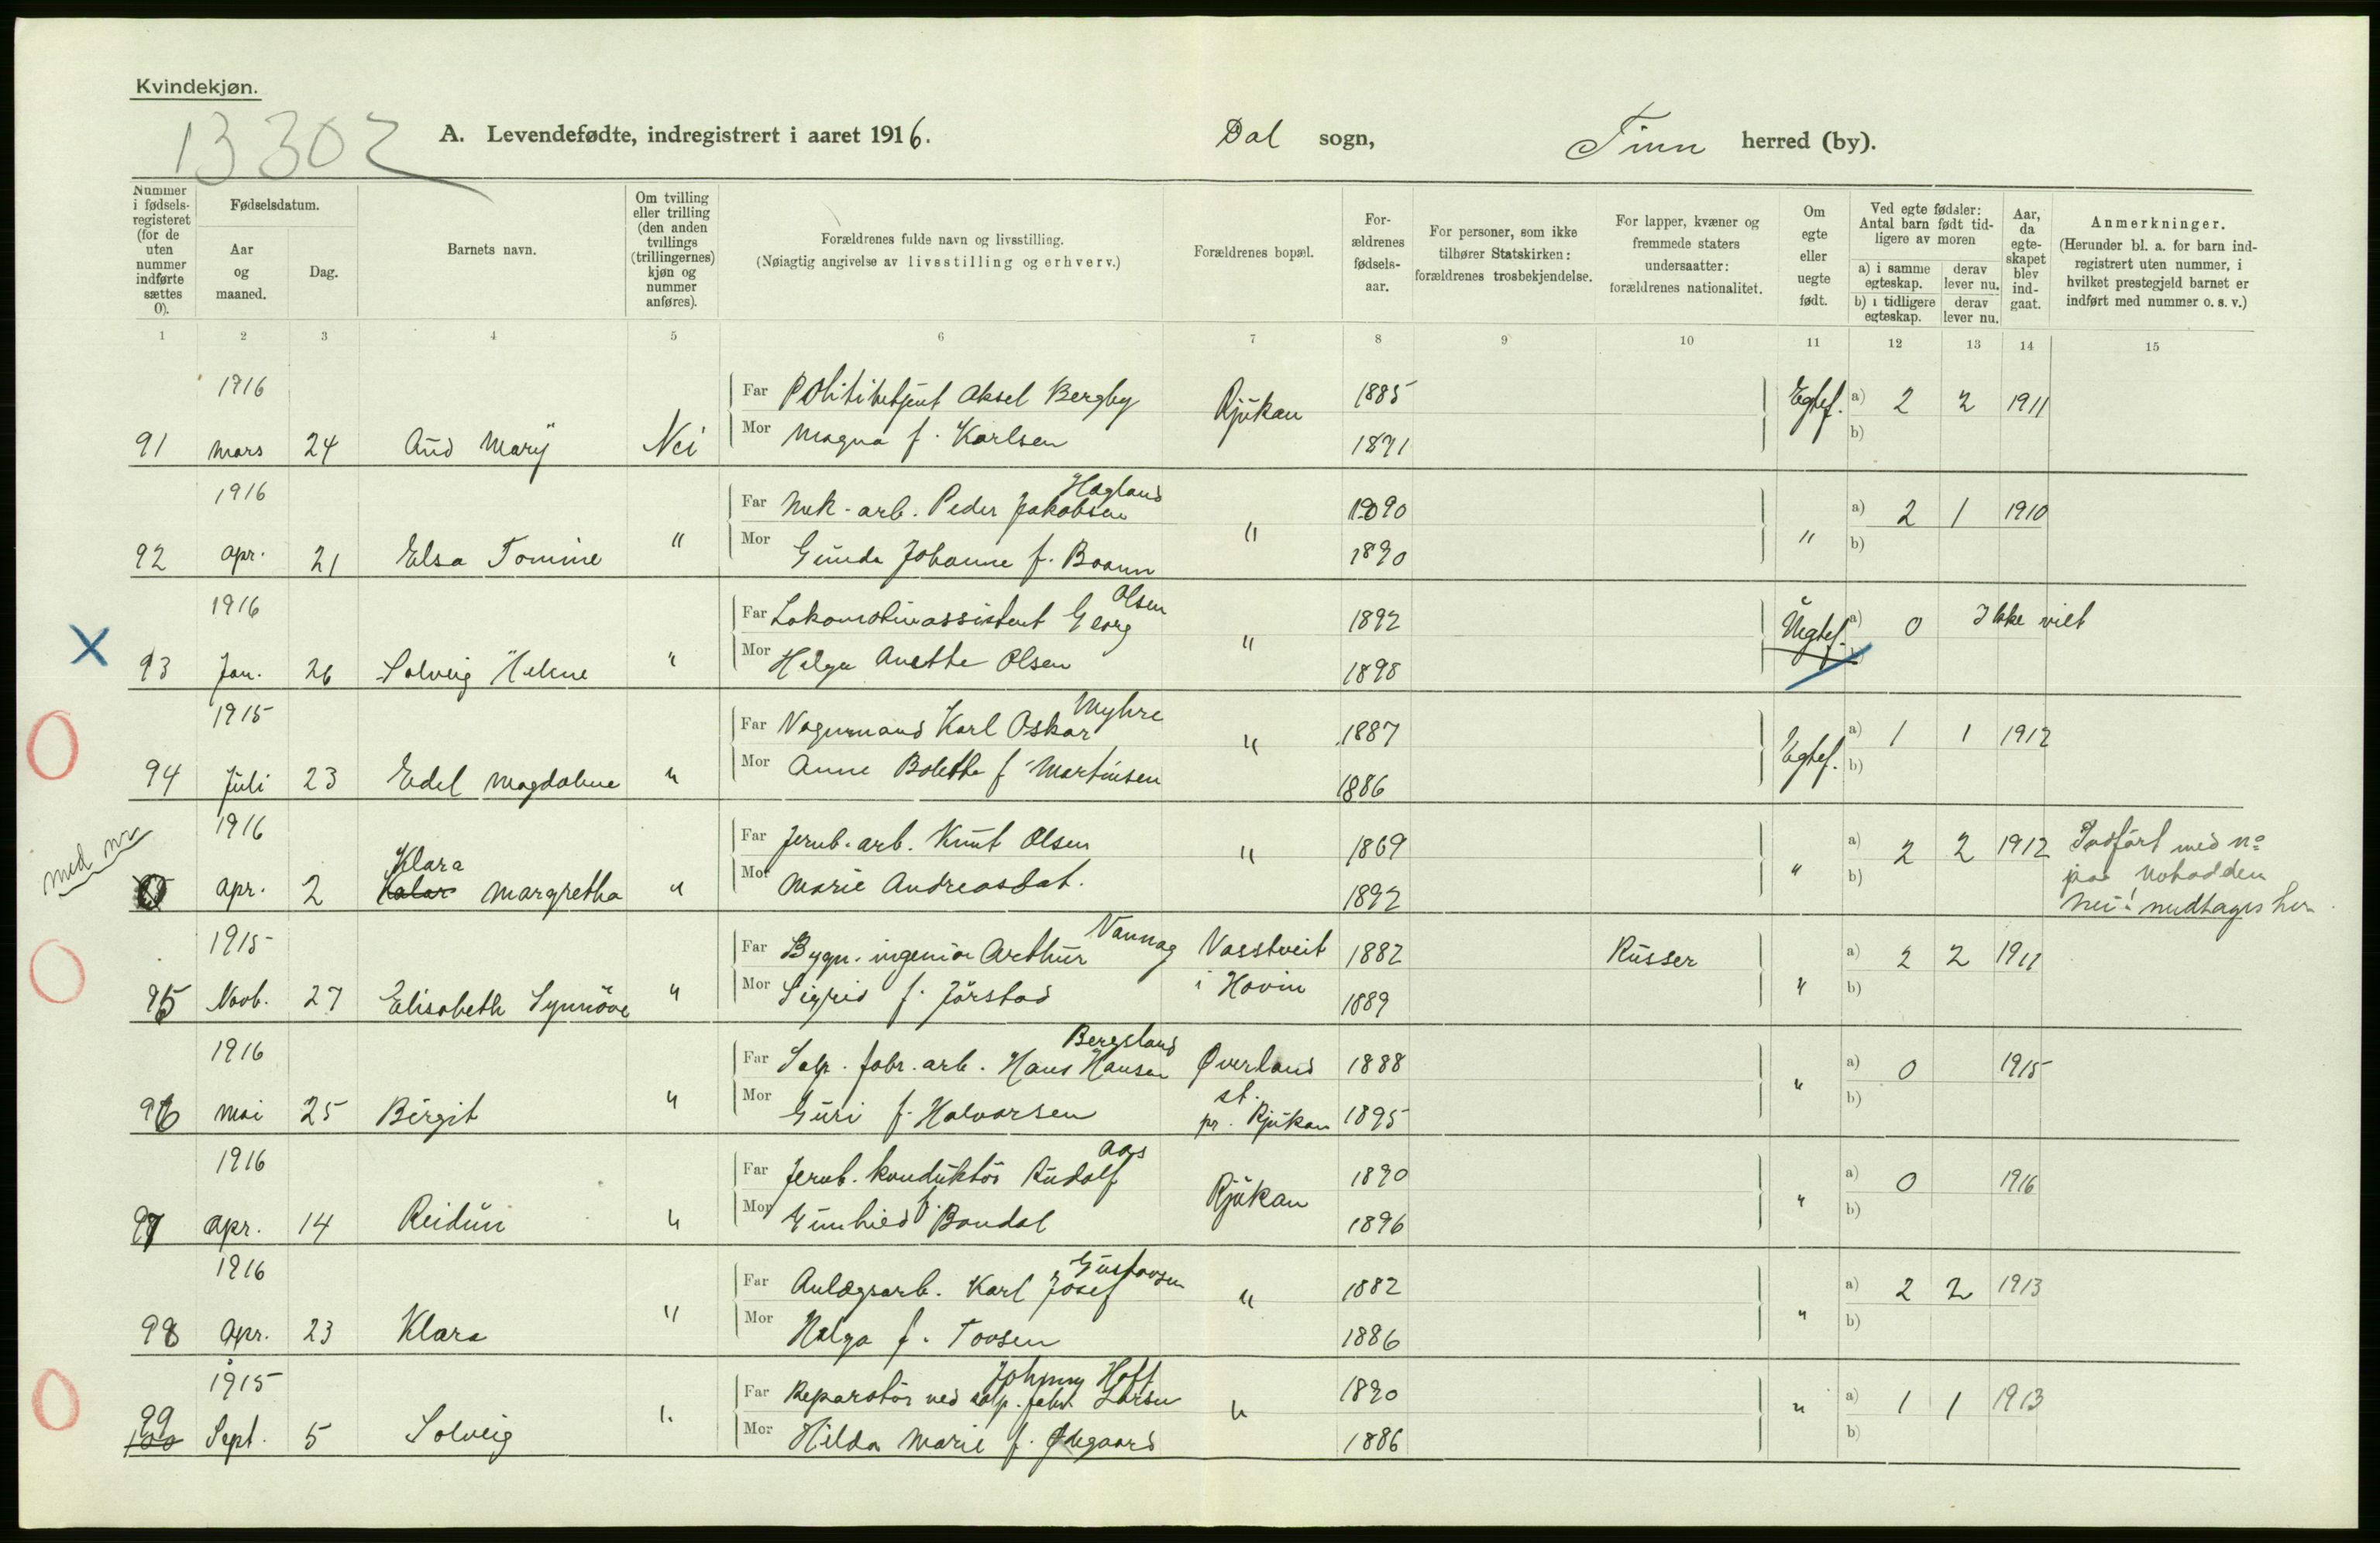 Kvindekjøn.
13302
A. Levendefødte, indregistrert i aaret 1916. Dal sogn, Tinn herred (by).
Nummer i fødsels-registeret (for de uten nummer indførte sættes 0).
Fødselsdatum.
Aar og maaned.
Dag.
Barnets navn.
Om tvilling eller trilling (den anden tvillings (trillingernes) kjøn og nummer anføres).
Forældrenes fulde navn og livsstilling.
(Nøiagtig angivelse av livsstilling og erhverv.)
Forældrenes bopæl.
For-ældrenes fødsels-aar.
For personer, som ikke tilhører Statskirken: forældrenes trosbekjendelse.
For lapper, kvæner og fremmede staters undersaatter: forældrenes nationalitet.
Om egte eller uegte født.
Ved egte fødsler: Antal barn født tid-ligere av moren
a) i samme egteskap.
derav lever nu.
b) i tidligere egteskap.
derav lever nu.
Aar, da egte-skapet blev ind-gaat.
Anmerkninger.
(Herunder bl. a. for barn ind-registrert uten nummer, i hvilket prestegjeld barnet er indført med nummer o. s. v.)
1 2 3 4 5 6 7 8 9 10 11 12 13 14 15
1916 Far Politibetjent Aksel Bergby Rjukan 1885 Egtef. a) 2 2 1911
91 mars 24 Aud Mary Nei Mor Magna f. Karlsen 1891 b)
1916 Hagland
Far Mek-arb. Peder Jakobsen " 1890 " a) 2 1 1910
92 apr. 21 Elsa Tomine " Mor Gunda Johanne f. Boann 1890 b)
1916 Olsen
Far Lokomotivassistent Georg " 1892 Uegtef. a) 0 Ikke viet
X 93 Jan. 26 Solveig Helene " Mor Helga Anette Olsen 1898 b)
1915 Myhre
Far Vognmand Karl Oskar " 1887 Egtef. a) 1 1 1912
94 Juli 23 Edel Magdalene " Mor Anne Bolette f. Martinsen 1886 b)
1916 Far Jernb.-arb. Knut Olsen " 1869 " a) 2 2 1912 Indført med no
med nr Klara paa Notodden
0 apr. 2 Kalar Margretha " Mor Marie Andreasdat. 1892 b) Nei! medtages her
1915 Vannag
Far Bygn. ingeniør Arthur Vasstveit 1882 Russer a) 2 2 1911
95 Novb. 27 Elisabeth Synnöve " Mor Sigrid f. Jörstad i Hovin 1889 " b)
1916 Bergsland
Far Salp. fabr. arb. Hans Hansen Øverland 1888 " a) 0 1915
96 mai 25 Birgit " Mor Guri f. Halvorsen st. pr. Rjukan 1895 b)
1916 Aas
Far Jernb. konduktör Rudolf Rjukan 1890 " a) 0 1916
97 apr. 14 Reidun " Mor Gunhild f. Bondal 1896 b)
1916 Gustavsen
Far Anlægsarb. Karl Josef " 1882 " a) 2 2 1913
98 Apr. 23 Klara " Mor Helga f. Tovsen 1886 b)
1915 Johnny Hoff
Far Reparatör ved salp. fabr. Larsen " 1890 " a) 1 1 1913
99
100 Sept. 5 Solveig " Mor Hilda Marie f. Ødegaard 1886 b)